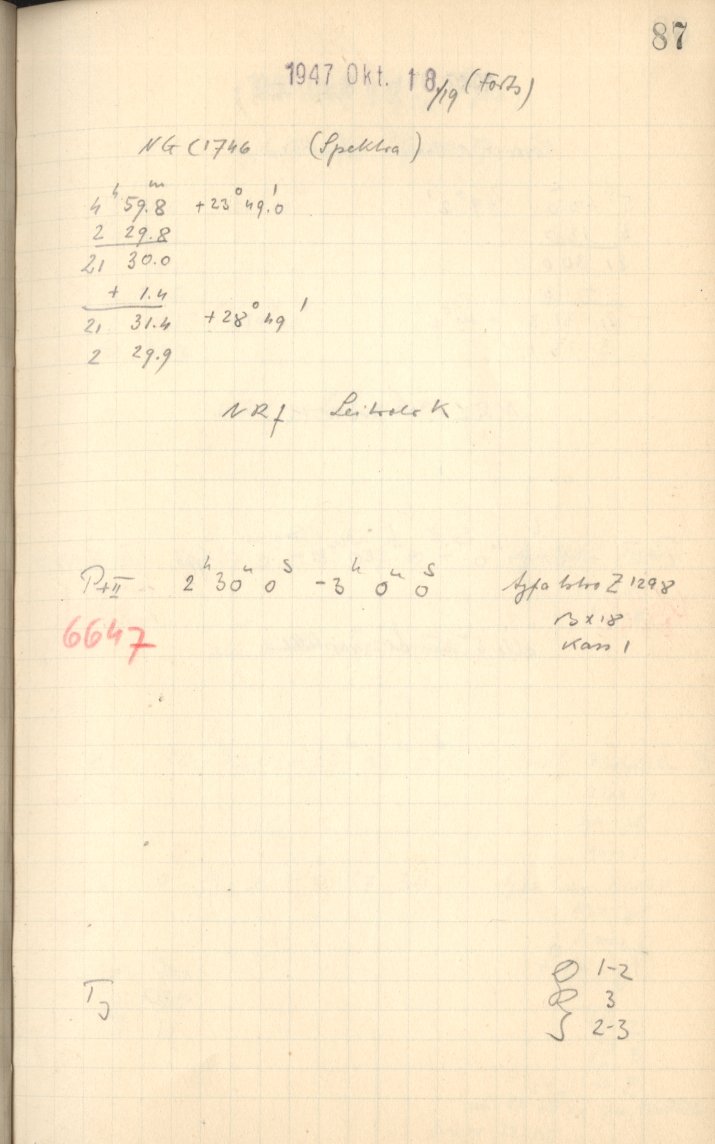 87
1947 Okt. 18/19 (Forts)
NGC 1746 (Spektra)
4h 59.8m +23° 49.0'
2 29.8
21 30.0
+ 1.4
21 31.4 +28° 49'
2 29.9
NRf Leitrohr K
P+II 2h 30m 0s -3h 0m 0s Agfa Z 1298
6647 B x 18
Kass 1
TJ
1-2
3
S 2-3